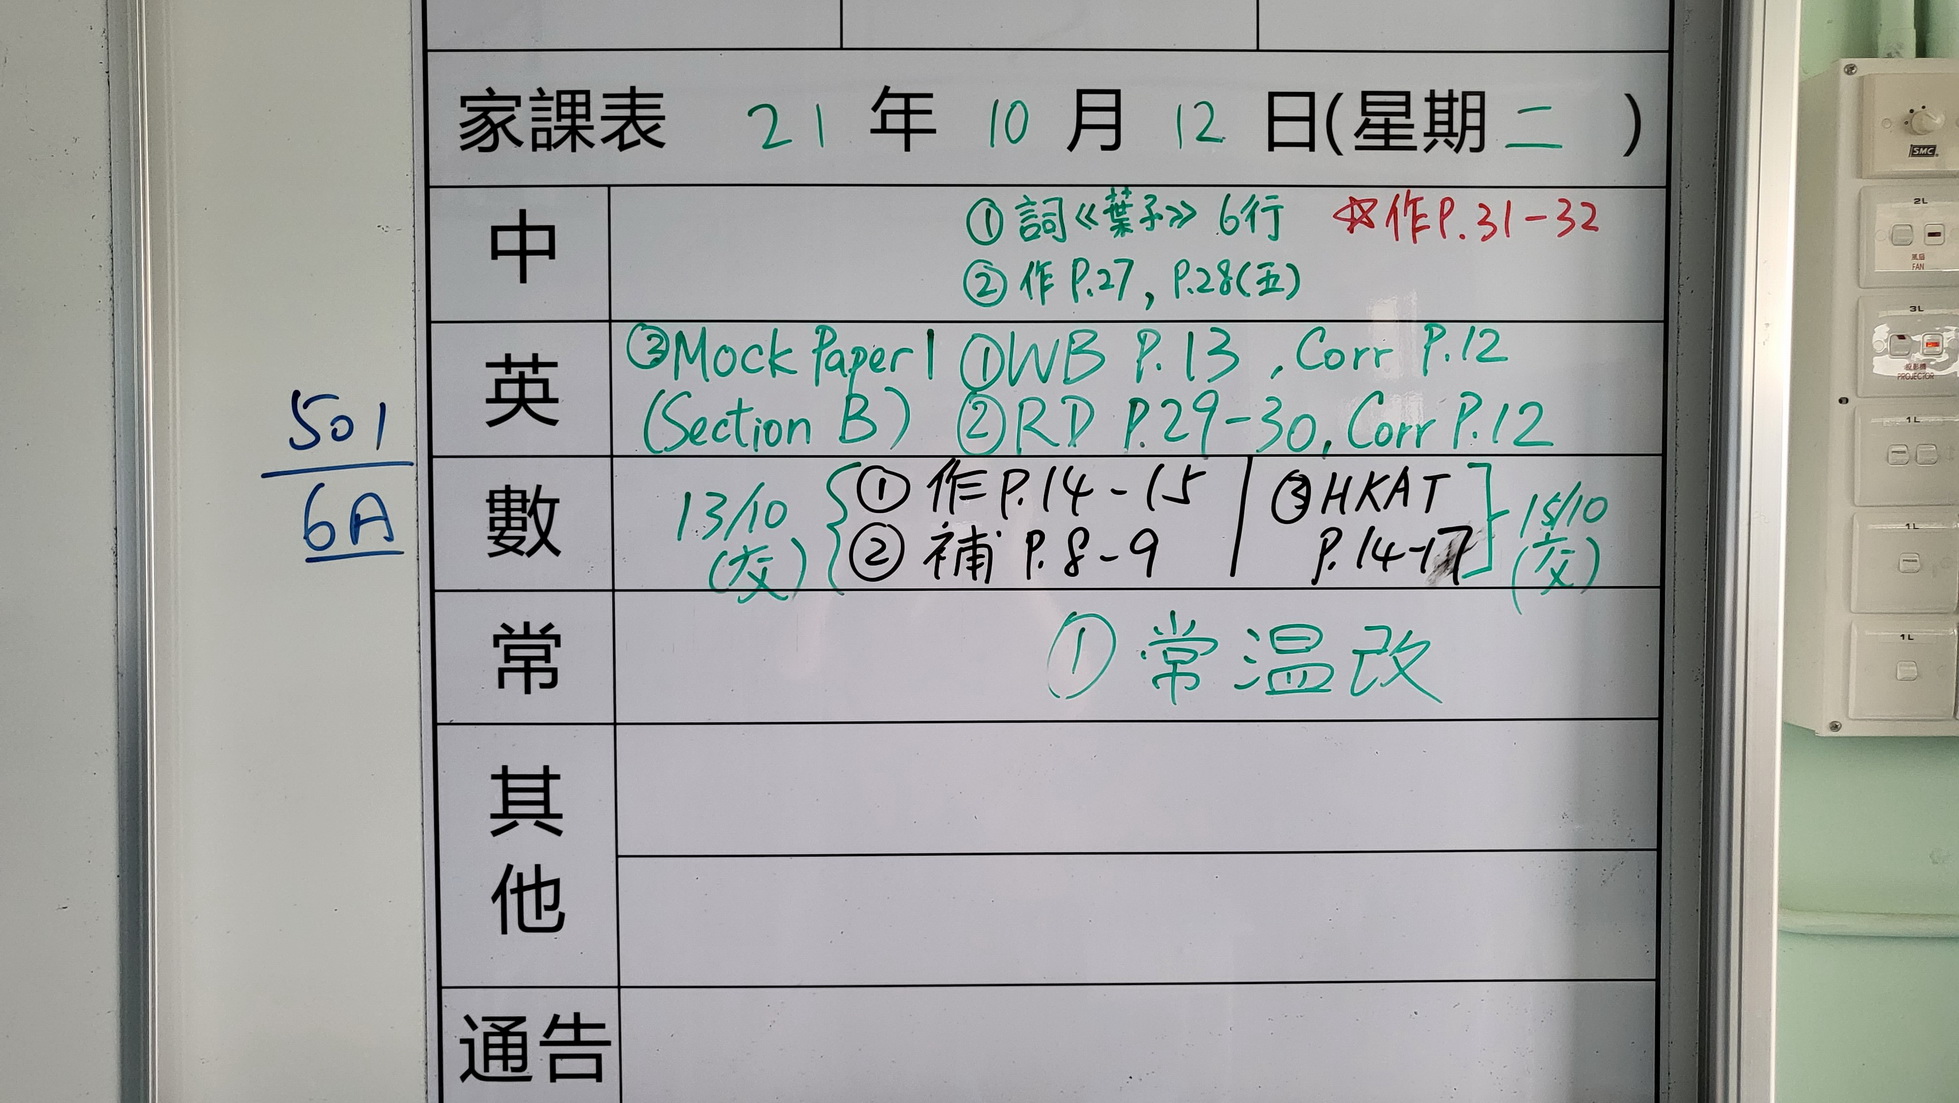 家課表 21 年 10 月 12 日(星期二 )
中
① 詞《葉子》 6行 ☆作P.31-32
② 作 P.27, P.28(五)
英
③Mock Paper 1 ①WB P.13 , Corr P.12
(Section B) ②RD P.29-30, Corr P.12
501
6A
數
13/10 { ① 作P.14-15 | ③HKAT ] 15/10
(交) ② 補 P.8-9 P.14-17 (交)
常
① 常温改
其他
通告
SMC
2L
風扇
FAN
3L
投影機
PROJECTOR
1L
1L
1L